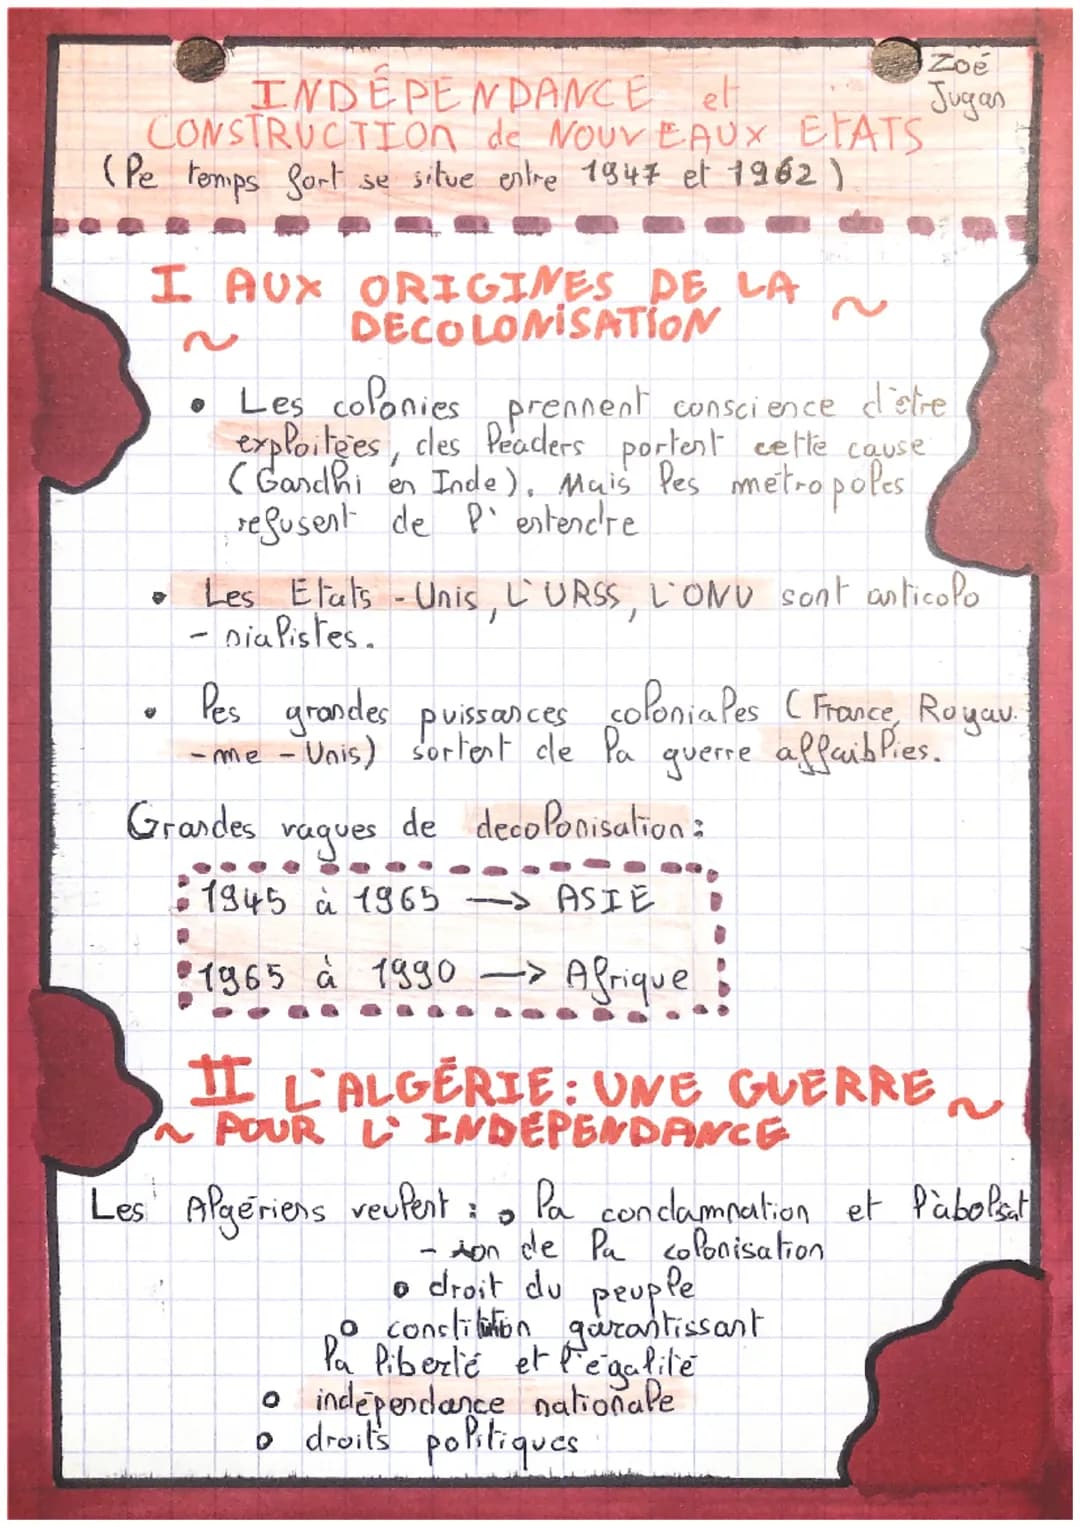 Zoé
Jugan
INDÉPENDANCE et
CONSTRUCTION de NOUVEAUX ETATS
(le temps fort se situe entre 1947 et 1962)
I AUX ORIGINES DE LA
~ DECOLONISATION ~
• Les colonies prennent conscience d'être
exploitées, des leaders portent cette cause
(Gandhi en Inde). Mais les métropoles
refusent de l'entendre
• Les Etats-Unis, L'URSS, L'ONU sont anticolo
- nialistes.
• les grandes puissances coloniales (France, Royau.
- me - Unis) sortent de la guerre affaiblies.
Grandes vagues de decolonisation :
1945 à 1965 → ASIE
1965 à 1990 → Afrique
II L'ALGÉRIE : UNE GUERRE
~ POUR L'INDÉPENDANCE ~
Les Algériens veulent : • la condamnation et l'abolisat
- ion de la colonisation
• droit du peuple
• constitution garantissant
la liberté et l'égalité
• indépendance nationale
• droits politiques